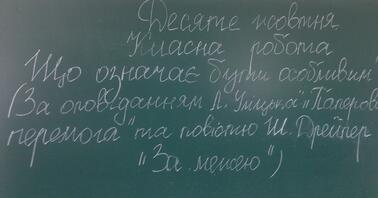 Десяте жовтня
Класна робота
Що означає бути особливим
(За оповіданням Л. Улицької "Паперова
перемога" та повістю Ш. Дрейпер
"За межею")